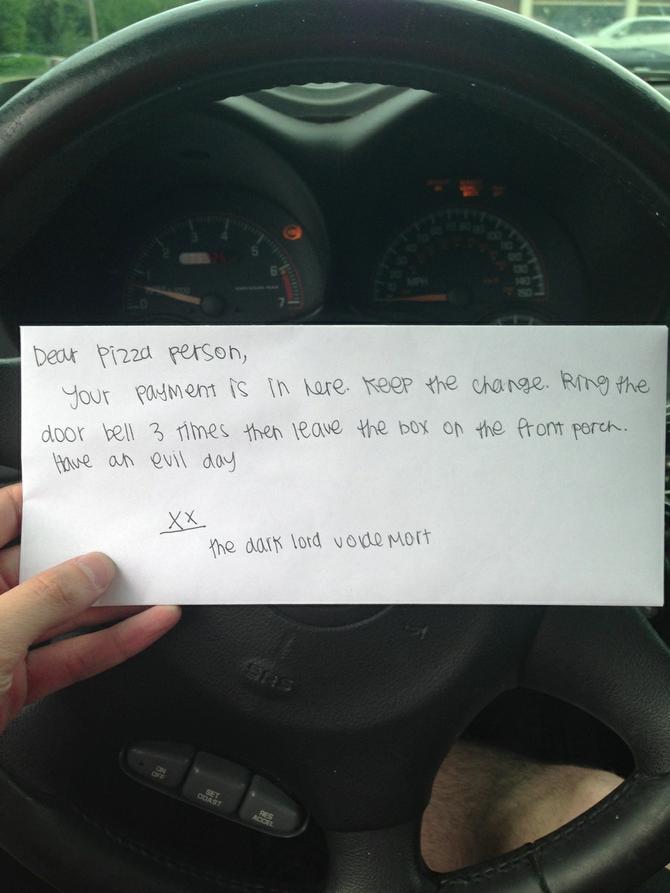 0 1 2 3 4 5 6 7
MPH
150
Dear Pizza person,
Your payment is in here. Keep the change. Ring the
door bell 3 times then leave the box on the front porch.
Have an evil day
XX
the dark lord voldemort
SRS
ON
OFF
SET
COAST
RES
ACCEL